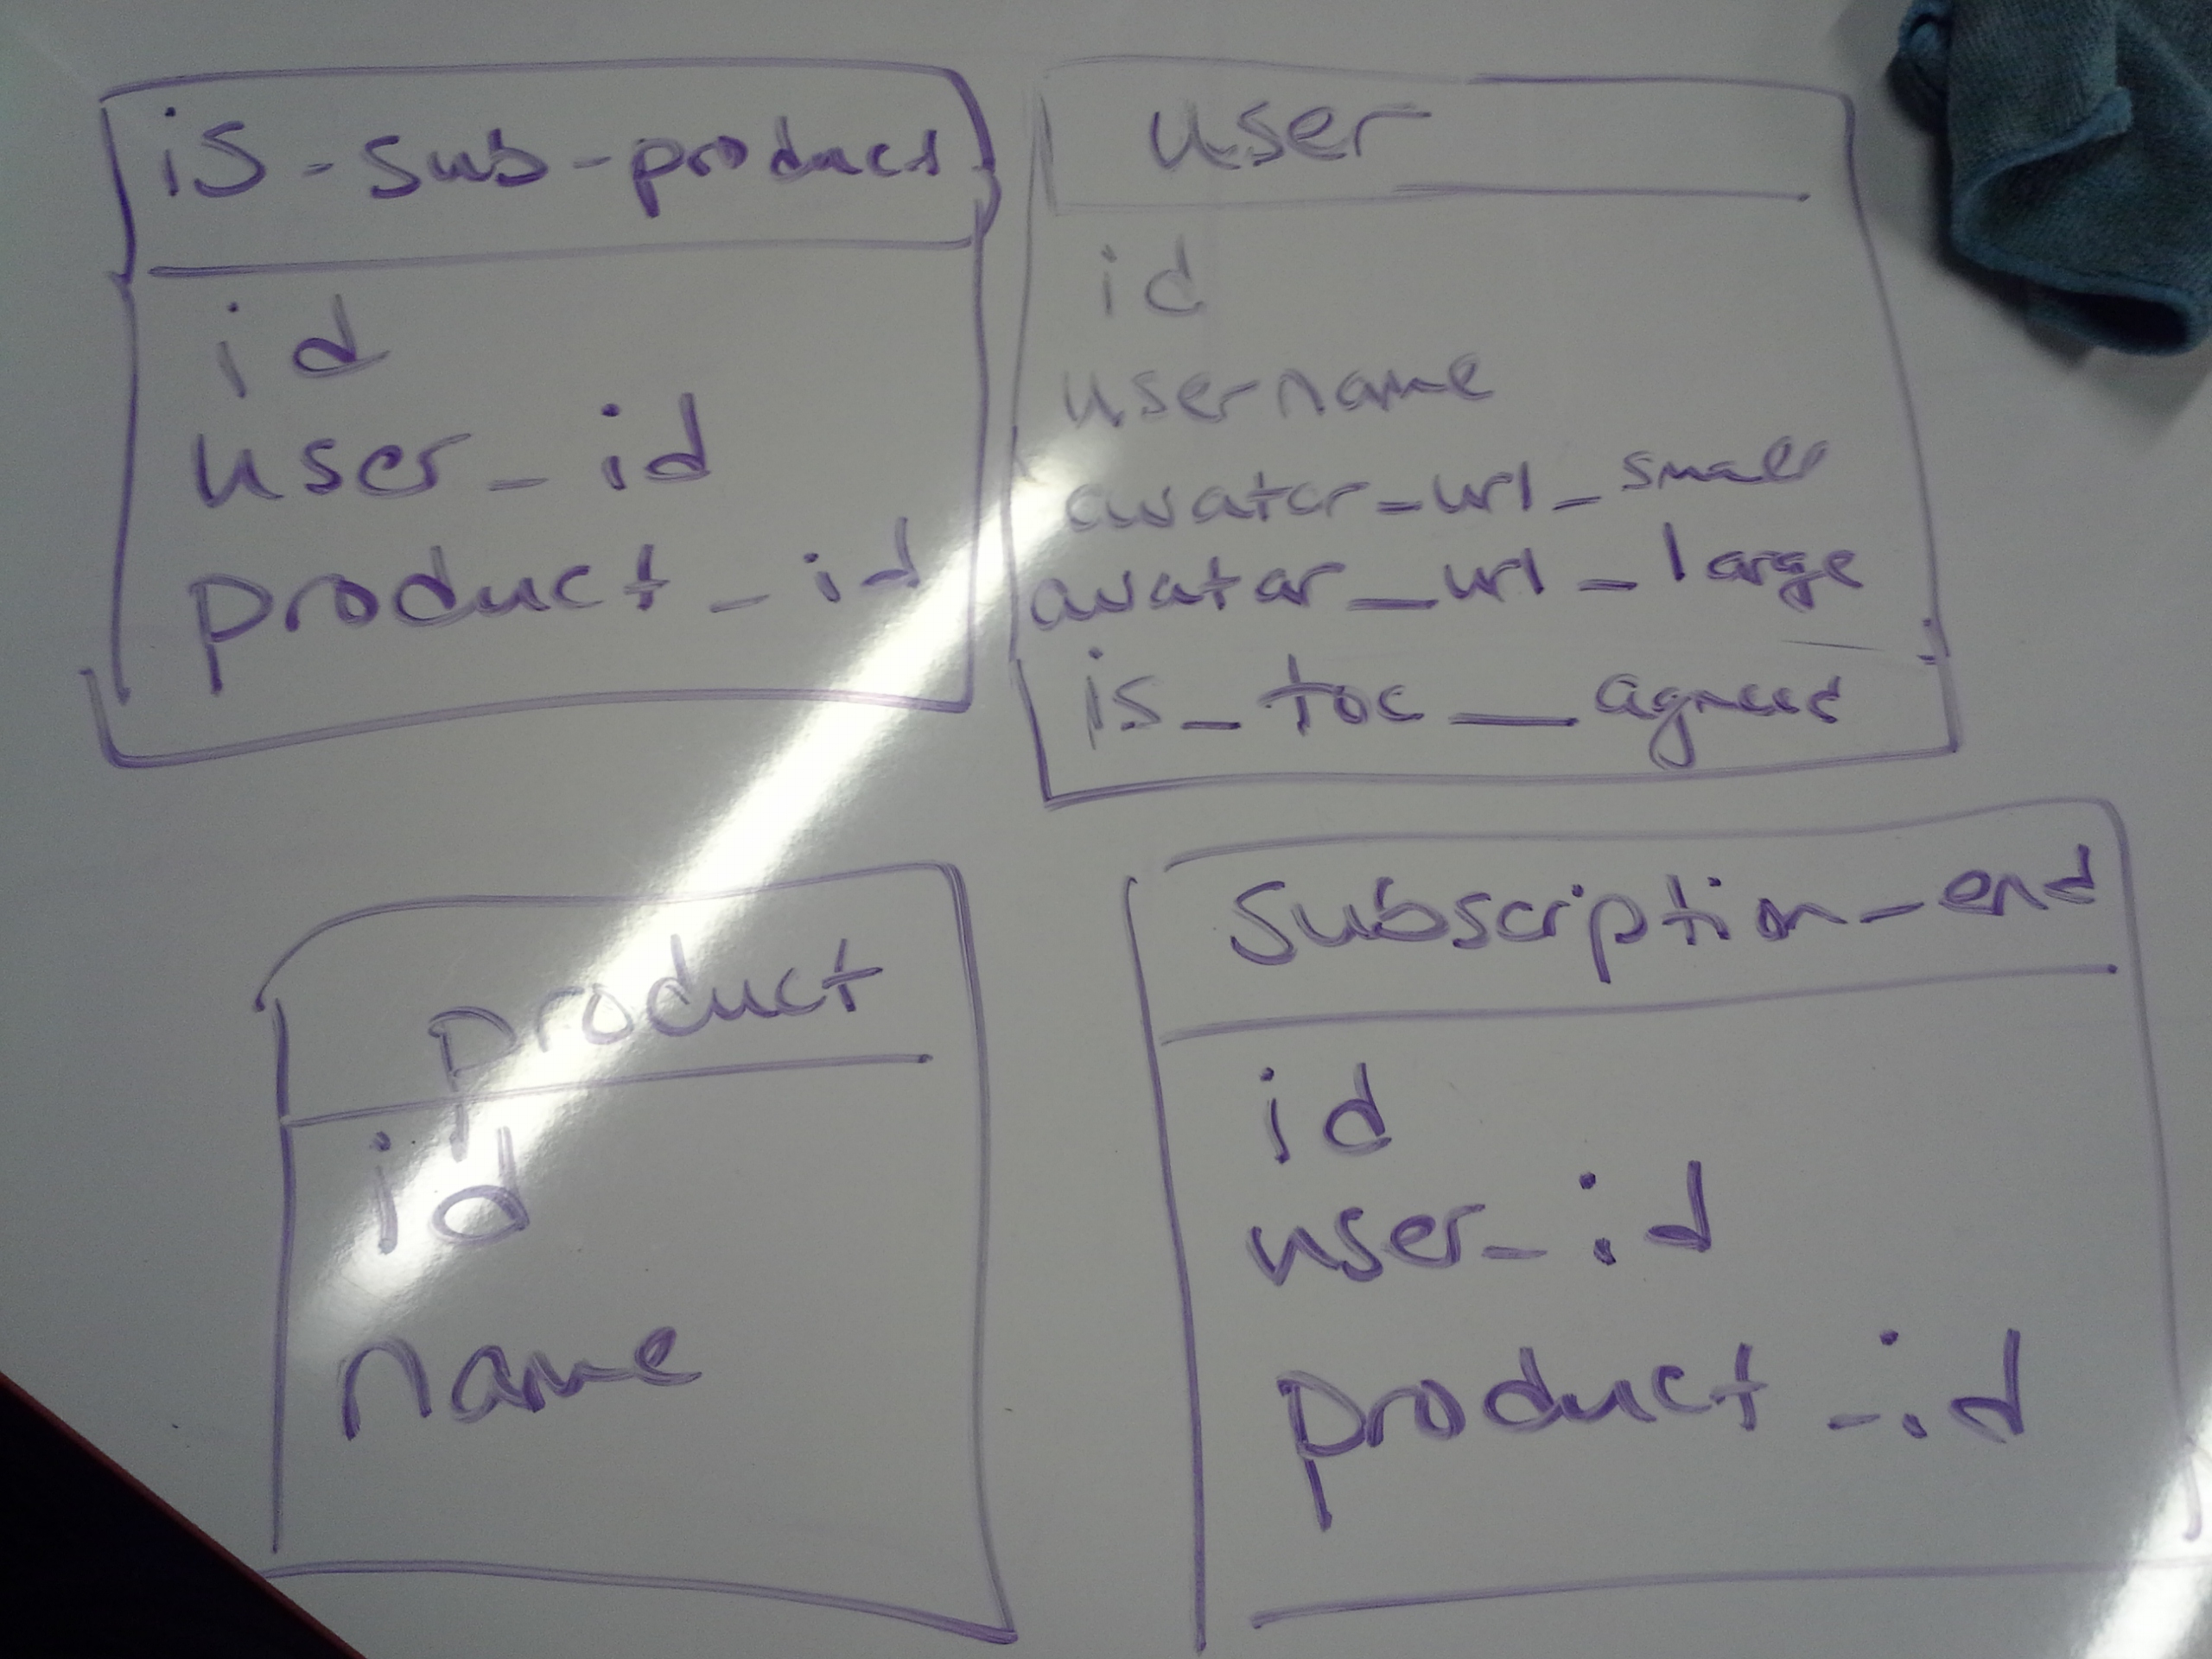 is-sub-product
id
user_id
product_id
user
id
username
avatar_url_small
avatar_url_large
is_toc_agreed
product
id
name
subscription_end
id
user_id
product_id